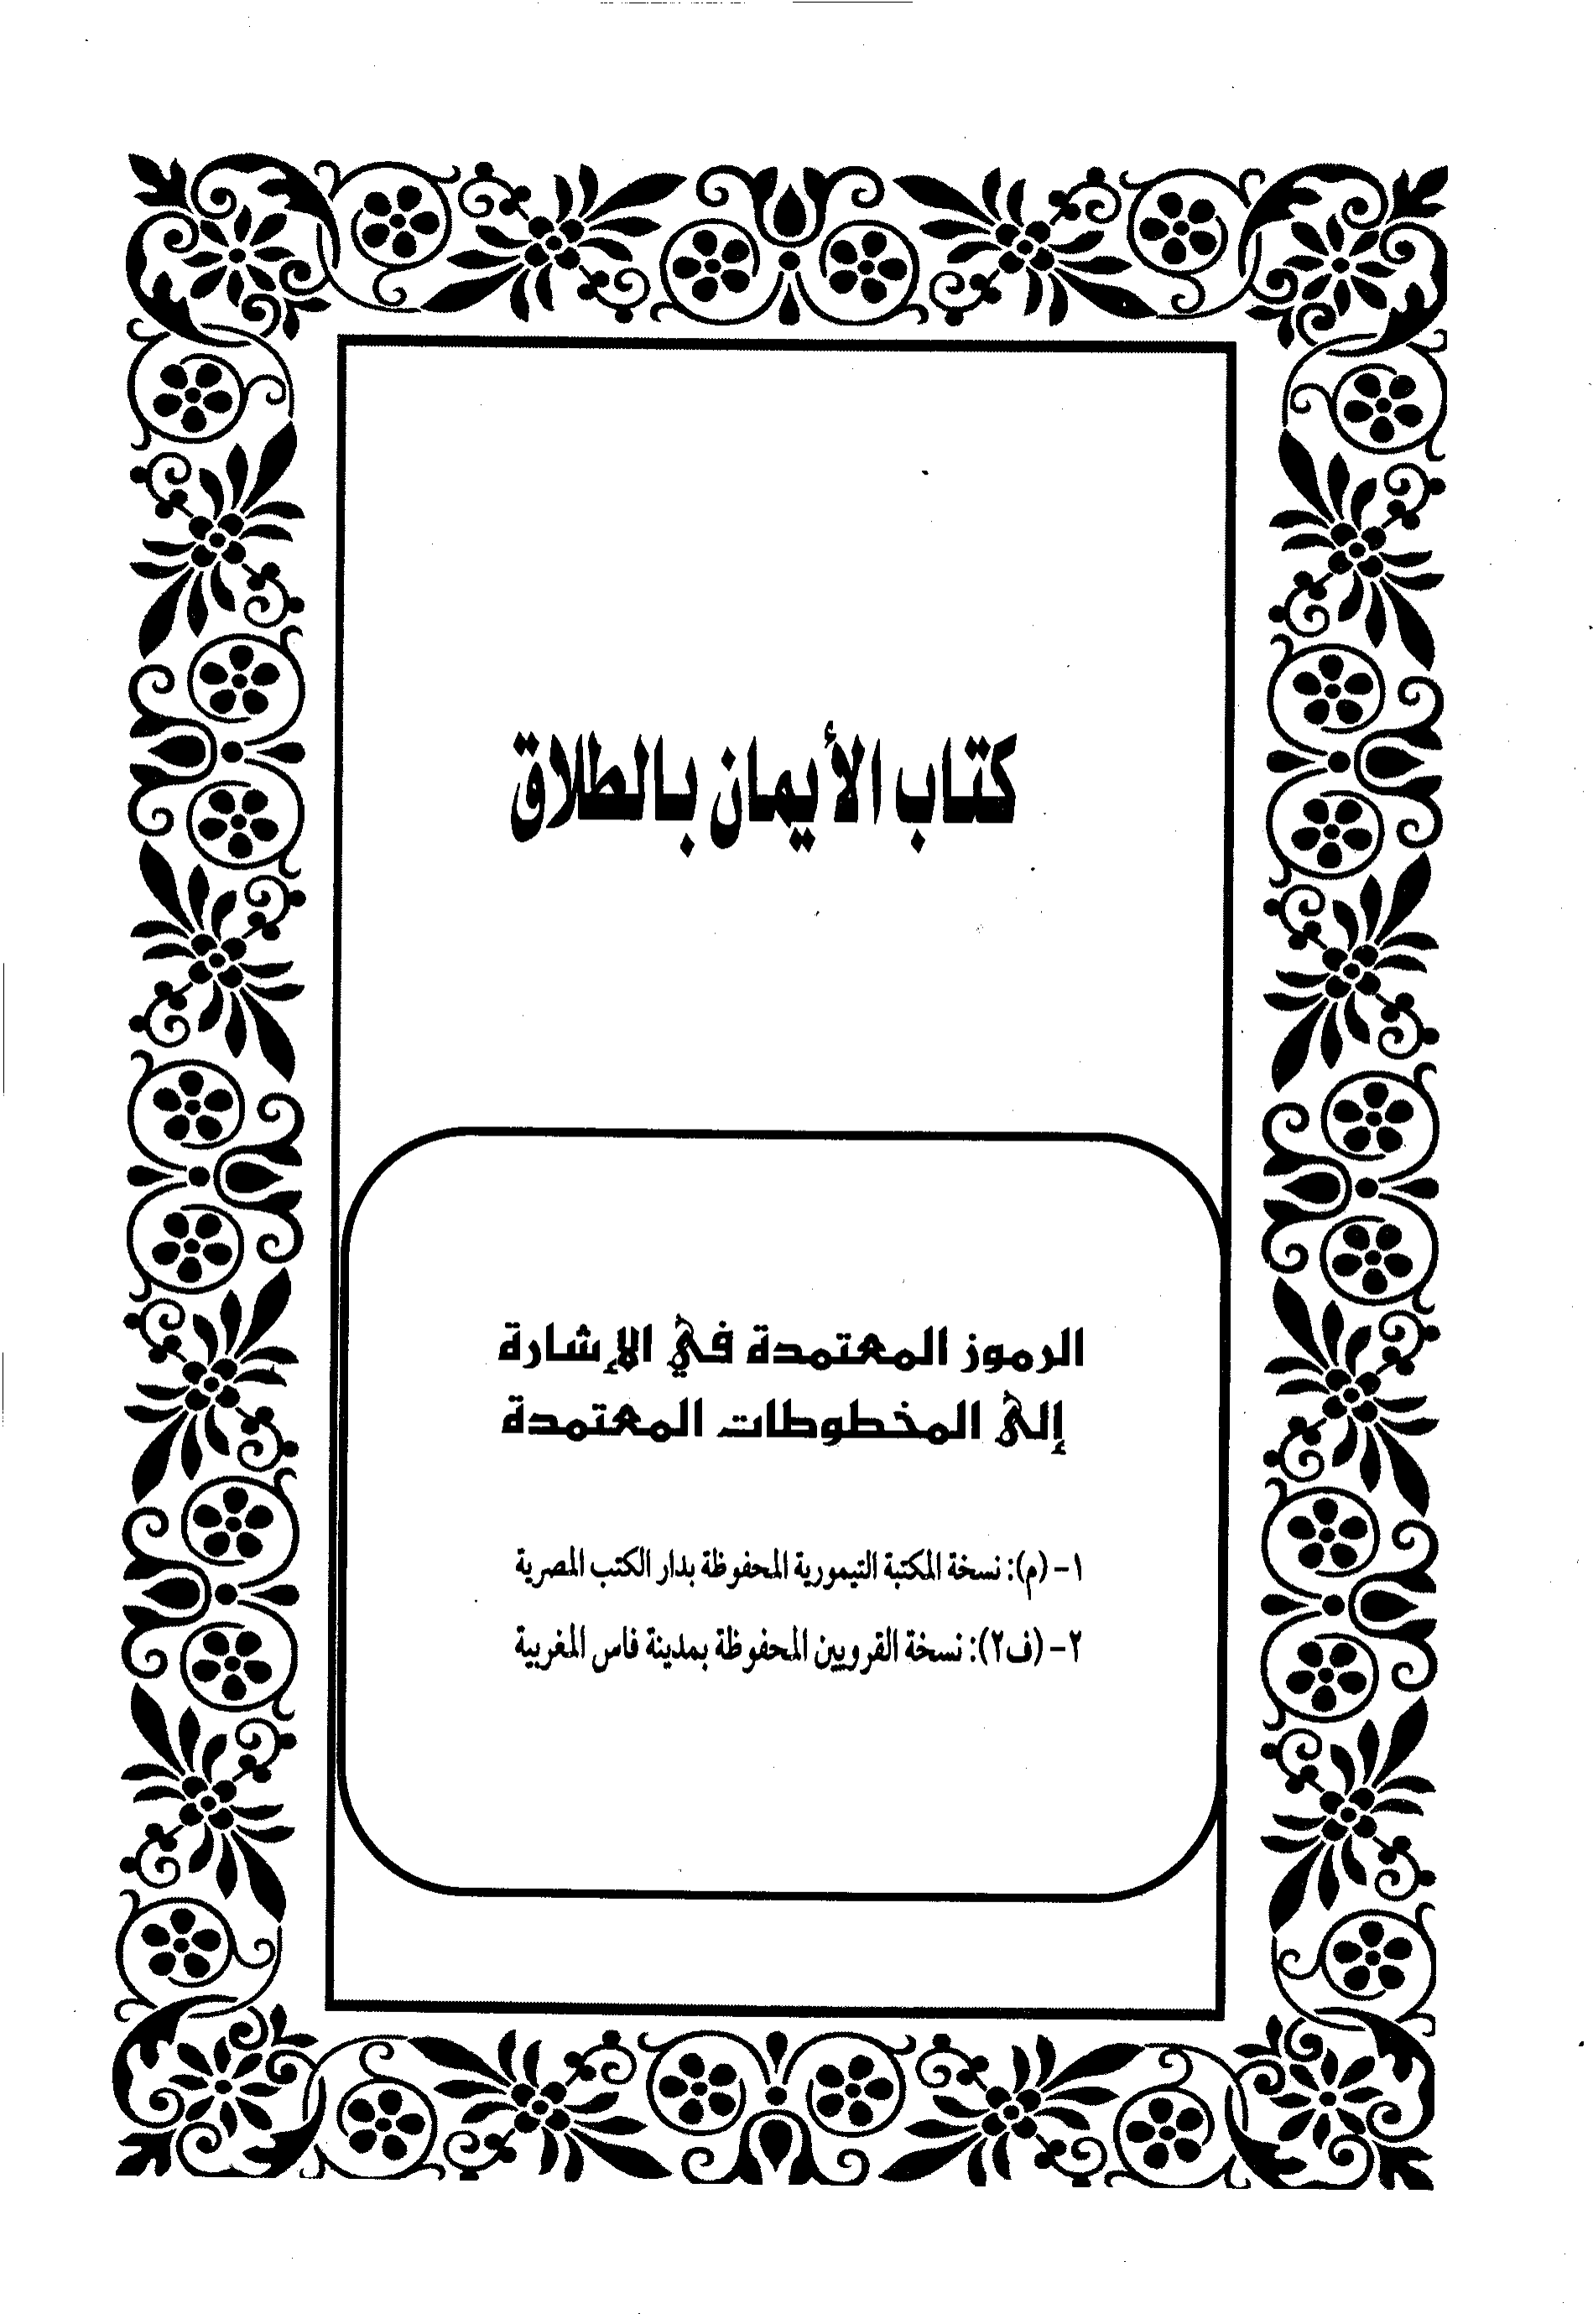 كتاب الأيمان بالطلاق
الرموز المعتمدة في الإشارة
إلى المخطوطات المعتمدة
١- (م): نسخة المكتبة التيمورية المحفوظة بدار الكتب المصرية
٢- (ف٢): نسخة القرويين المحفوظة بمدينة فاس المغربية